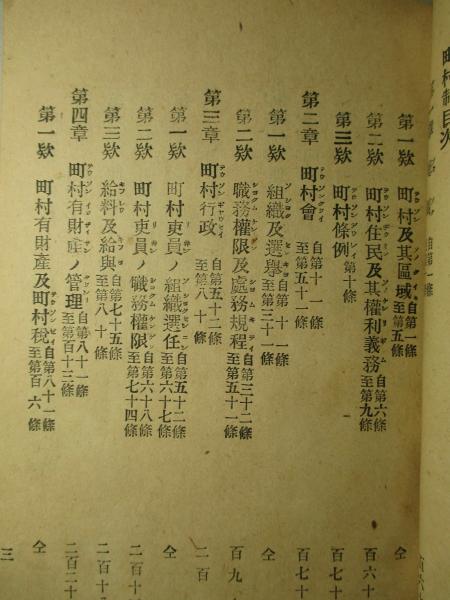 町村制目次
第一欵 町村及其區域 自第一條 至第五條 仝
第二欵 町村住民及其權利義務 自第六條 至第九條 百六十
第三欵 町村條例 第十條 百七十
第二章 町村會 自第十一條 至第五十一條 百七十
第一欵 組織及選擧 自第十一條 至第三十一條 仝
第二欵 職務權限及處務規程 自第三十二條 至第五十一條 百九
第三章 町村行政 自第五十二條 至第八十條 二百
第一欵 町村吏員ノ組織選任 自第五十二條 至第六十七條 仝
第二欵 町村吏員ノ職務權限 自第六十八條 至第七十四條 二百十
第三欵 給料及給與 自第七十五條 至第八十條 二百十
第四章 町村有財産ノ管理 自第八十一條 至第百十三條 二百二十
第一欵 町村有財産及町村稅 自第八十一條 至第百六條 仝
三